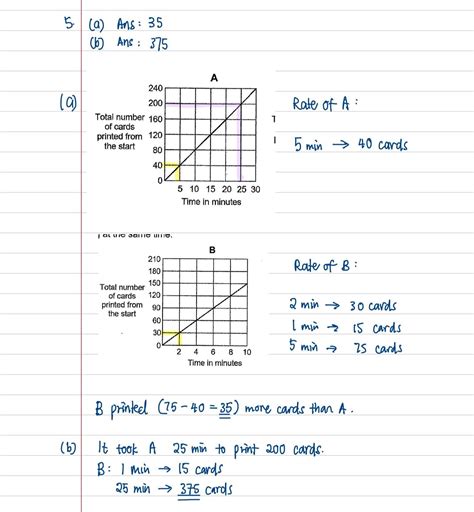 5 (a) Ans : 35
(b) Ans : 375
(a)
A
Total number of cards printed from the start
240
200
160
120
80
40
0
5 10 15 20 25 30
Time in minutes
Rate of A :
5 min → 40 cards
at the same time.
B
Total number of cards printed from the start
210
180
150
120
90
60
30
0
2 4 6 8 10
Time in minutes
Rate of B :
2 min → 30 cards
1 min → 15 cards
5 min → 75 cards
B printed (75 - 40 = 35) more cards than A .
(b) It took A 25 min to print 200 cards.
B : 1 min → 15 cards
25 min → 375 cards